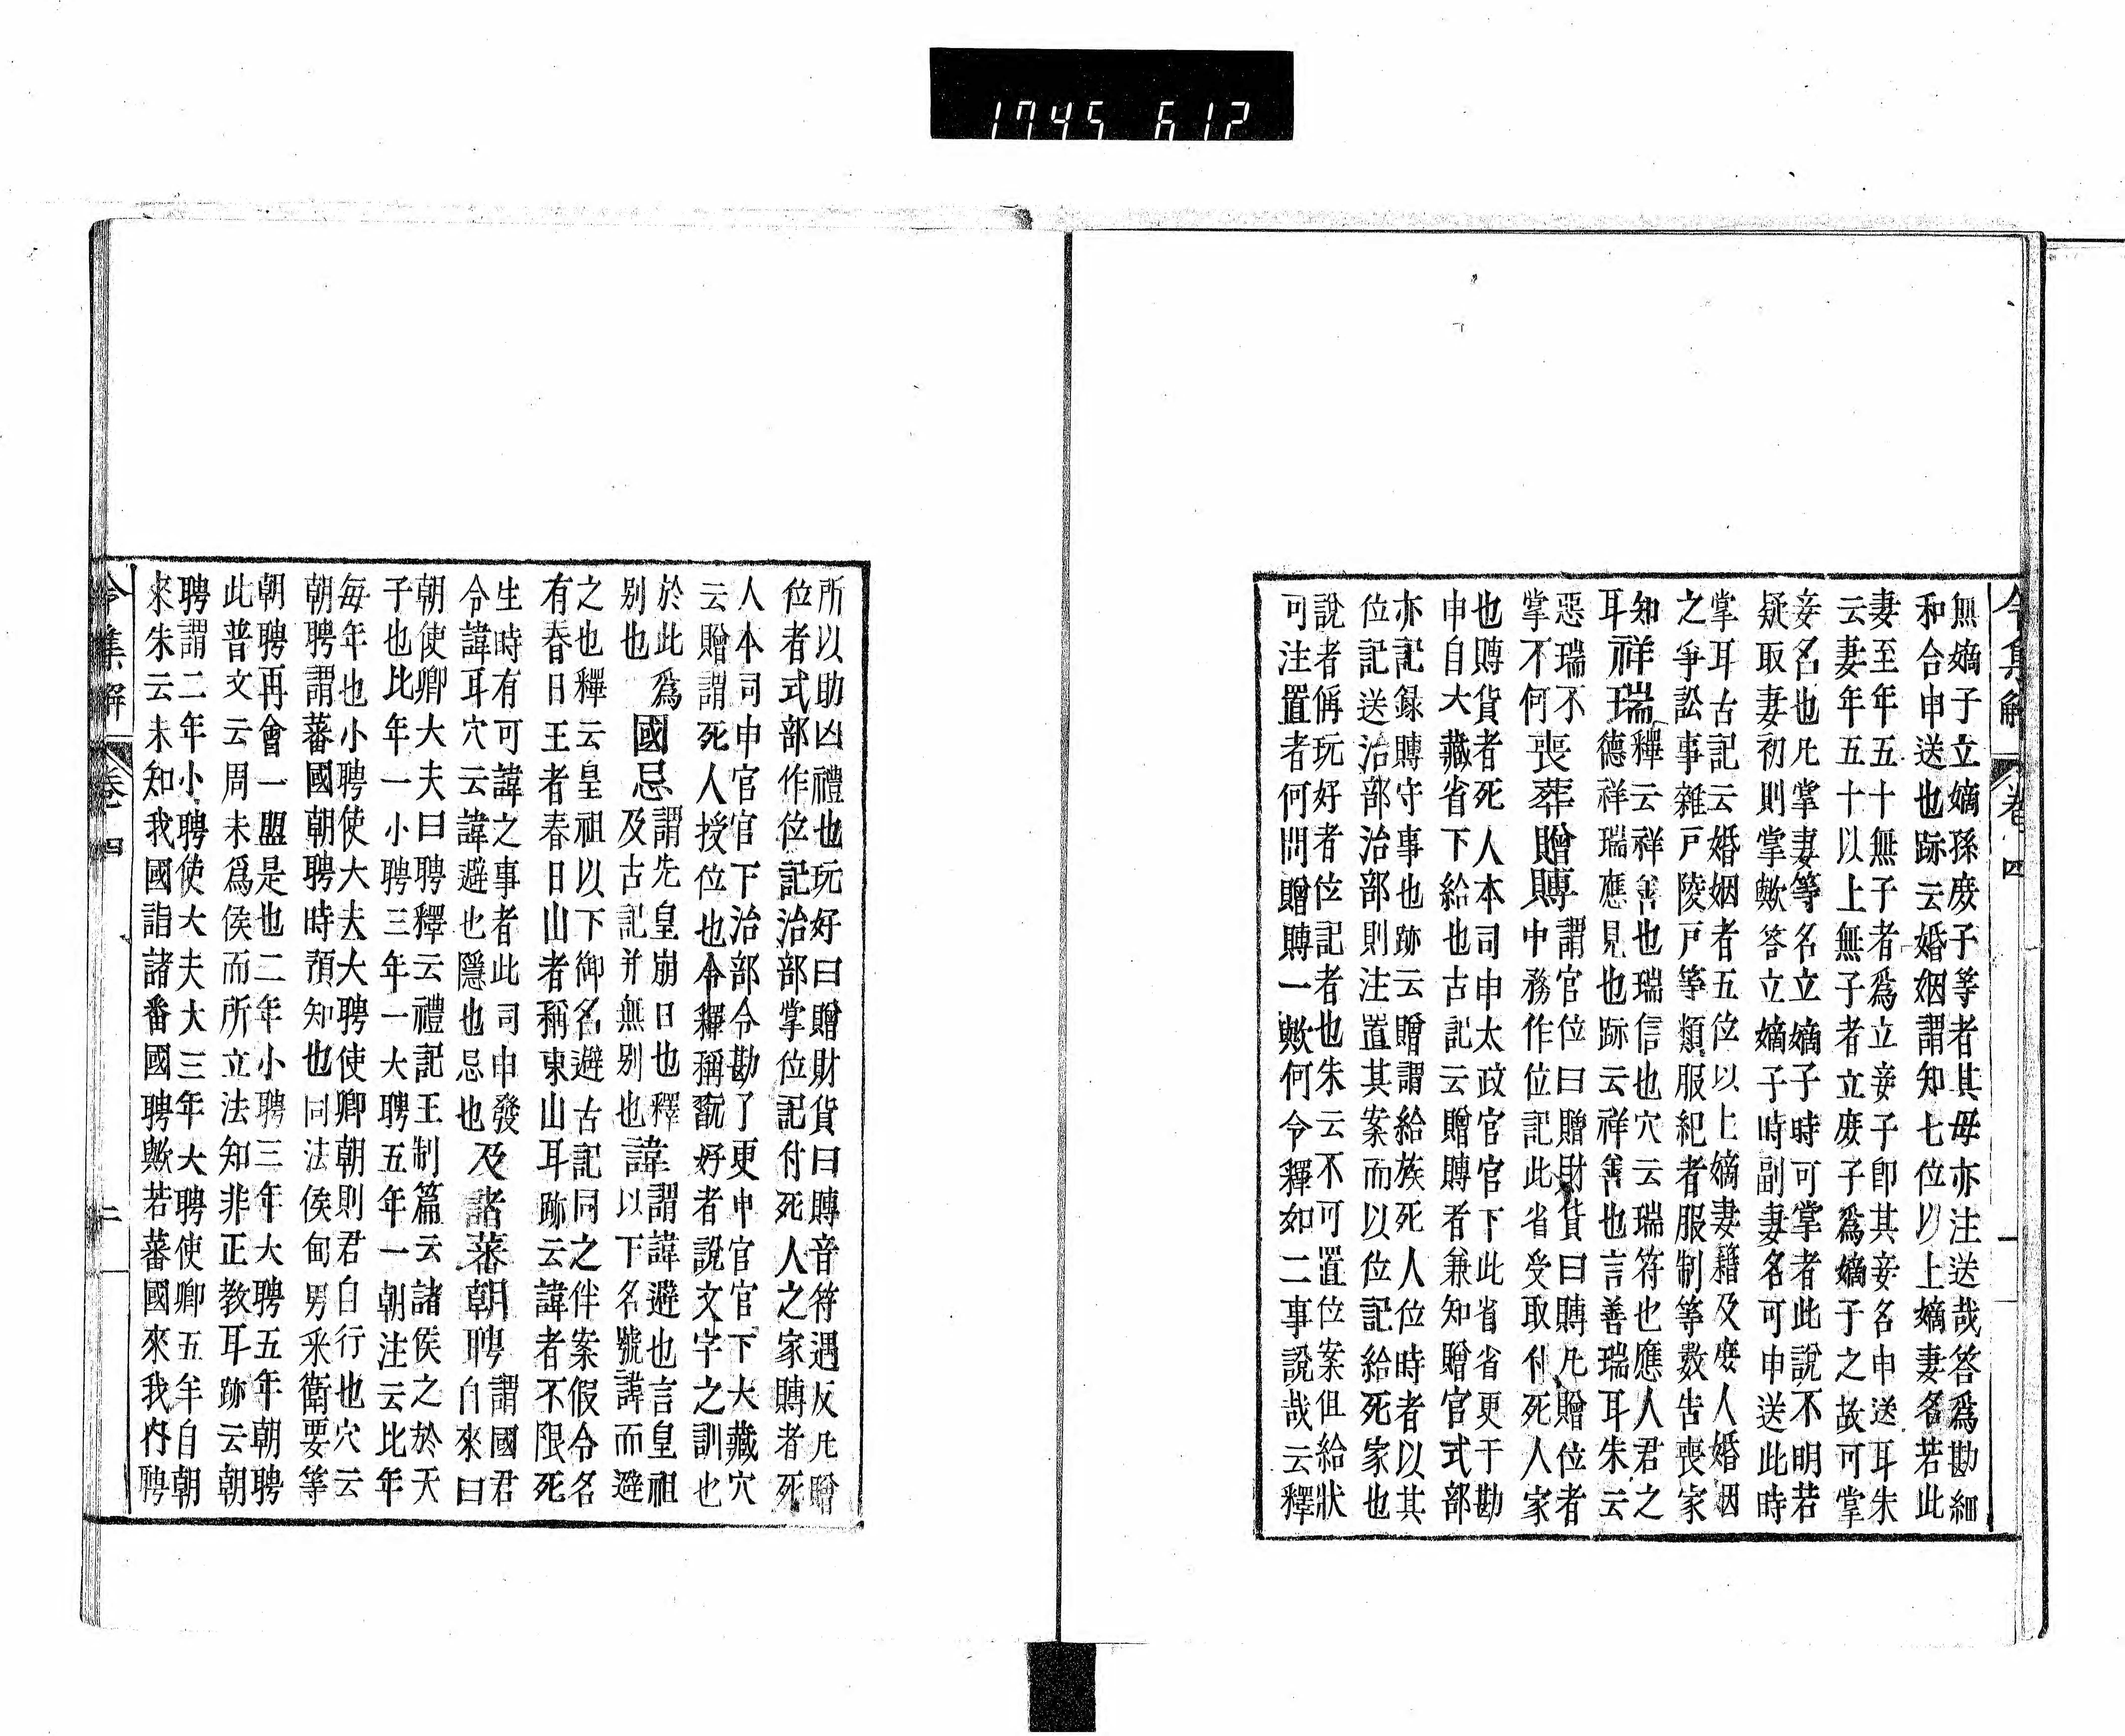 1745 612
令集解 卷四 一
無嫡子立嫡孫庻子等者其母亦注送哉答爲勘細
和合申送也跡云婚姻謂知七位以上嫡妻名若此
妻至年五十無子者爲立妾子卽其妾名申送耳朱
云妻年五十以上無子者立庻子爲嫡子之故可掌
妾名也凡掌妻妾等名立嫡子時可掌者此說不明若
疑取妻初則掌歟答立嫡子時副妻名可申送此時
掌耳古記云婚姻者五位以上嫡妻籍及庻人婚姻
之爭訟事雜戸陵戸等類服紀者服制等數告喪家
知祥瑞釋云祥善也瑞信也穴云瑞符也應人君之
耳 德祥瑞應見也跡云祥善也言善瑞耳朱云
惡瑞不喪葬贈賻謂官位曰贈財貨曰賻凡贈位者
掌不何 中務作位記此省受取付死人家
也賻貨者死人本司申太政官官下此省省更于勘
申自大藏省下給也古記云贈賻者兼知贈官式部
亦記録賻守事也跡云贈謂給族死人位時者以其
位記送治部治部則注置其案而以位記給死家也
說者偁玩好者位記者也朱云不可置位案但給狀
可注置者何問贈賻一歟何令釋如二事說哉云釋
所以助凶禮也玩好曰贈財貨曰賻音符遇反凡贈
位者式部作位記治部掌位記付死人之家賻者死
人本司申官官下治部令勘了更申官官下大藏穴
云贈謂死人授位也令釋稱翫好者說文字之訓也
於此爲國忌謂先皇崩日也釋諱謂諱避也言皇祖
別也 及古記并無別也 以下名號諱而避
之也釋云皇祖以下御名避古記同之伴案假令名
有春日王者春日山者稱東山耳跡云諱者不限死
生時有可諱之事者此司申發及諸蕃朝聘謂國君
令諱耳穴云諱避也隱也忌也 自來曰
朝使卿大夫曰聘釋云禮記王制篇云諸侯之於天
子也比年一小聘三年一大聘五年一朝注云比年
每年也小聘使大夫大聘使卿朝則君自行也穴云
朝聘謂蕃國朝聘時預知也同法侯甸男采衛要等
朝聘再會一盟是也二年小聘三年大聘五年朝聘
此普文云周末爲侯而所立法知非正教耳跡云朝
聘謂二年小聘使大夫大三年大聘使卿五年自朝
來朱云未知我國詣諸番國聘歟若蕃國來我内聘
令集解 卷四 二